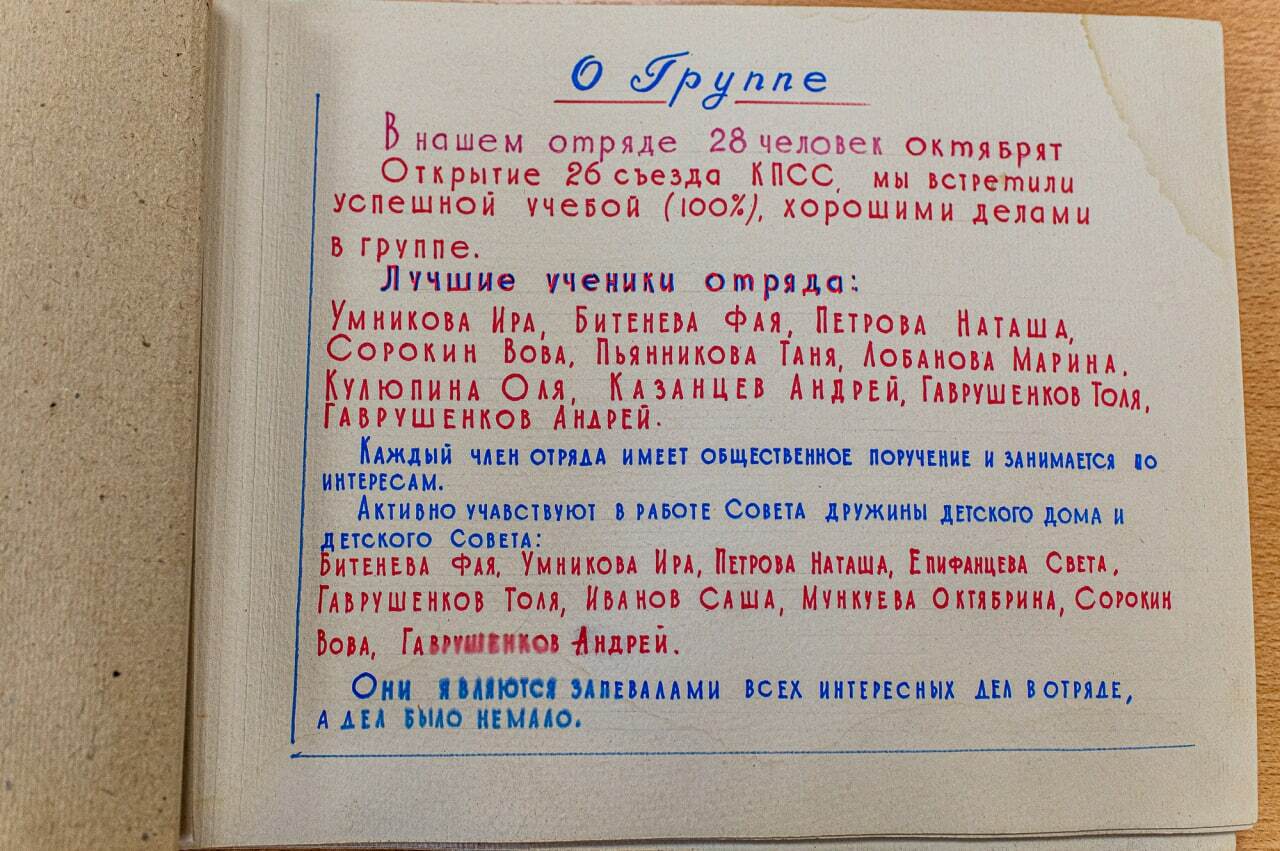 О Группе
В нашем отряде 28 человек октябрят
Открытие 26 съезда КПСС, мы встретили
успешной учебой (100%), хорошими делами
в группе.
Лучшие ученики отряда:
Умникова Ира, Битенева Фая, Петрова Наташа,
Сорокин Вова, Пьянникова Таня, Лобанова Марина.
Кулюпина Оля, Казанцев Андрей, Гаврушенков Толя,
Гаврушенков Андрей.
Каждый член отряда имеет общественное поручение и занимается по
интересам.
Активно учавствуют в работе Совета дружины детского дома и
детского Совета:
Битенева Фая, Умникова Ира, Петрова Наташа, Епифанцева Света,
Гаврушенков Толя, Иванов Саша, Мункуева Октябрина, Сорокин
Вова, Гаврушенков Андрей.
Они являются запевалами всех интересных дел в отряде,
а дел было немало.